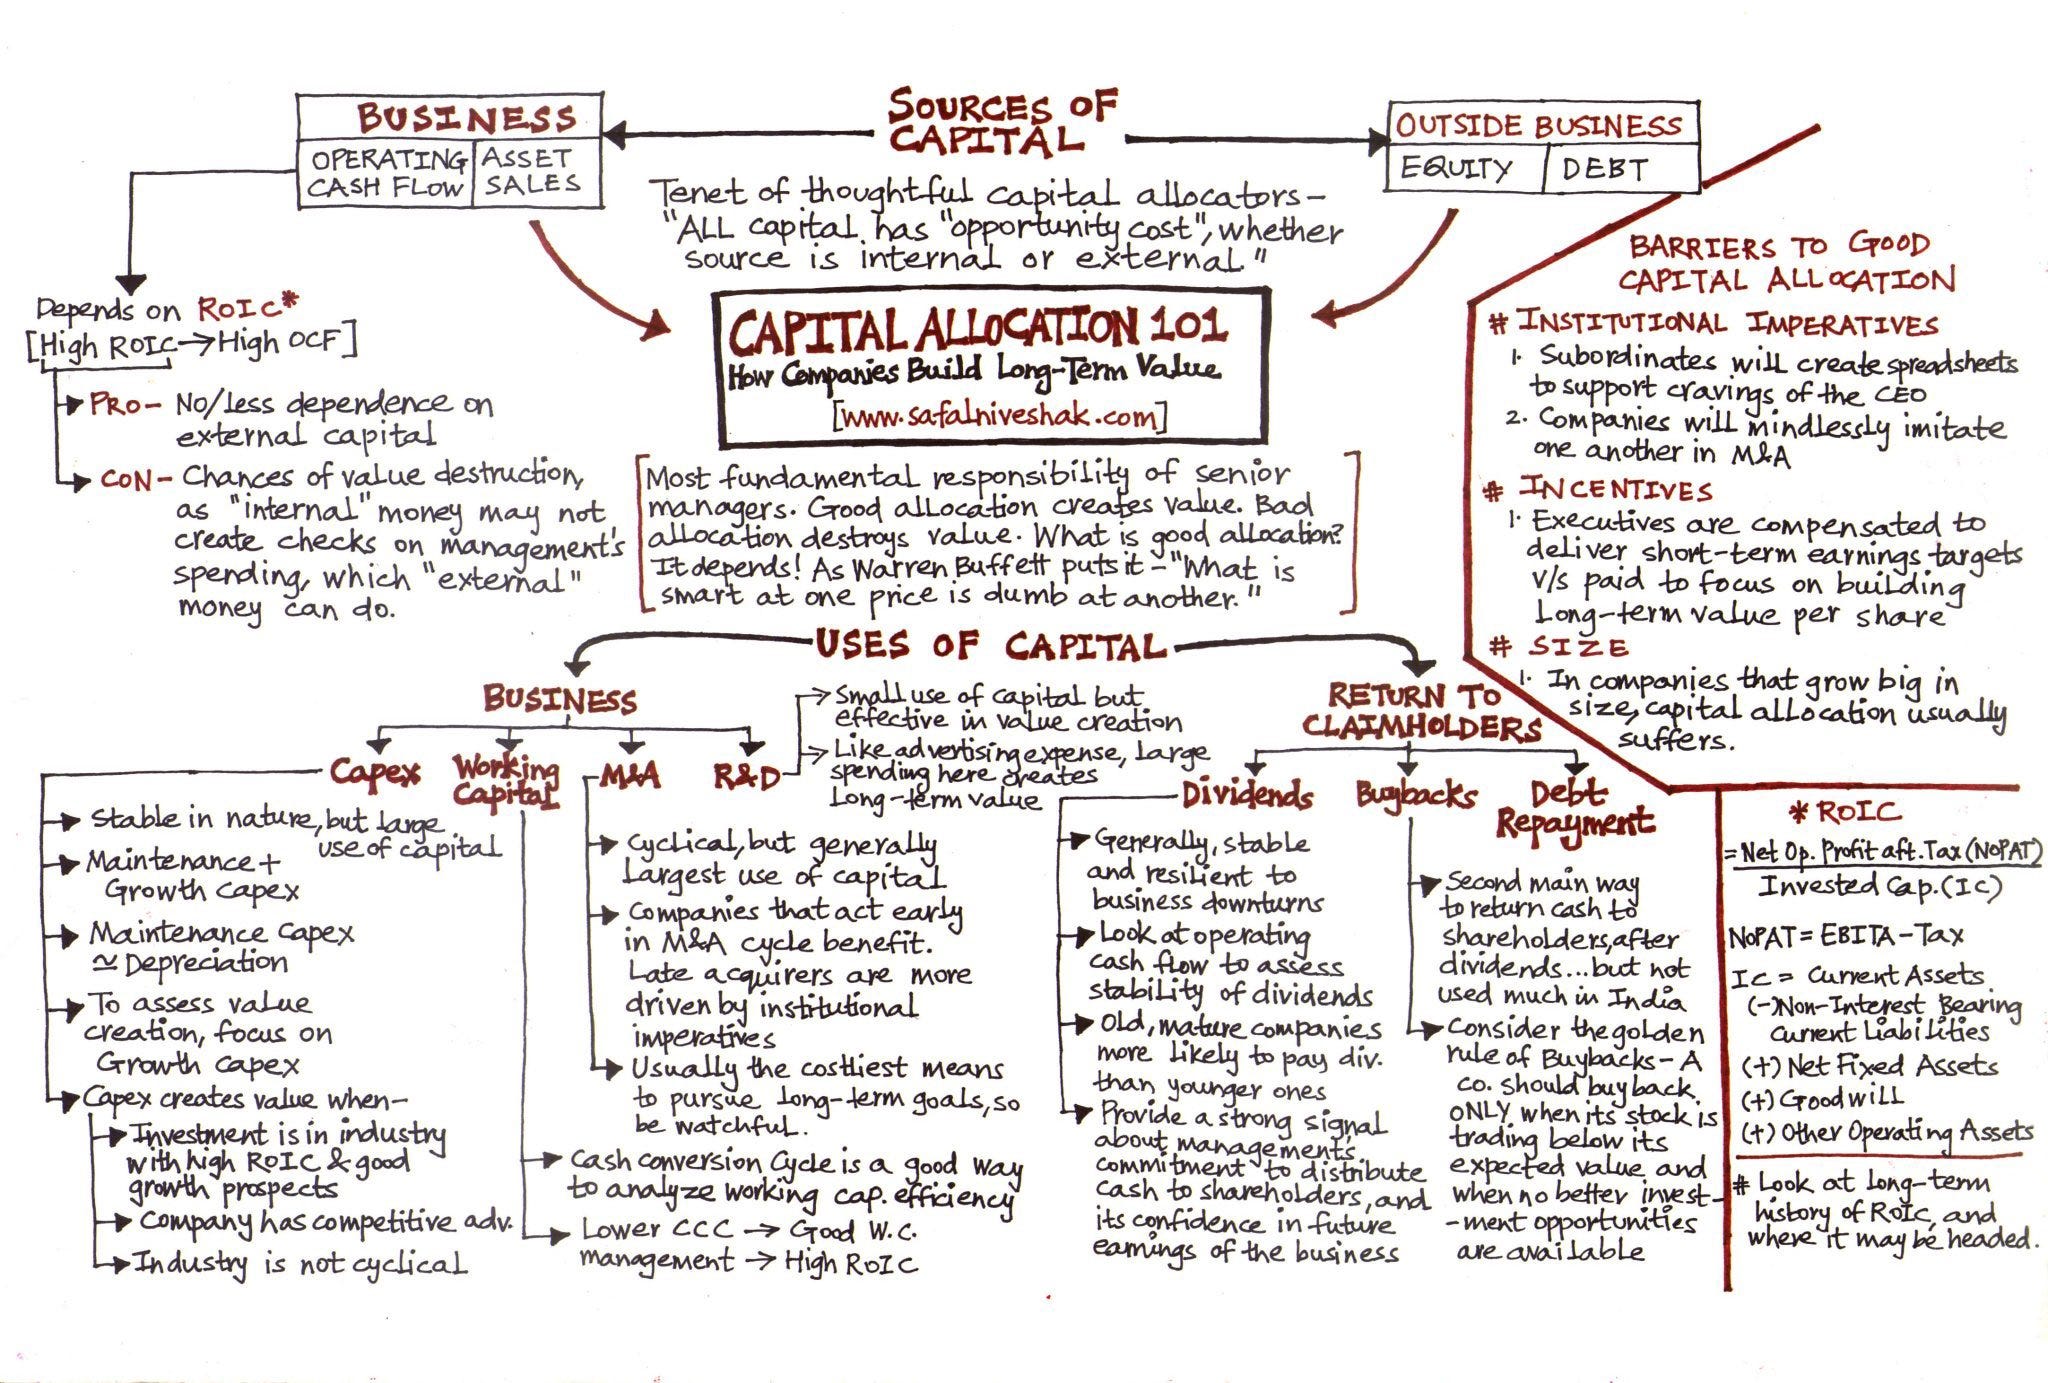 SOURCES OF
CAPITAL
BUSINESS
OPERATING
CASH FLOW
ASSET
SALES
OUTSIDE BUSINESS
EQUITY
DEBT
Tenet of thoughtful capital allocators-
"ALL capital has "opportunity cost", whether
source is internal or external."
CAPITAL ALLOCATION 101
How Companies Build Long-Term Value
[www.safalniveshak.com]
Depends on ROIC*
[High ROIC→High OCF]
PRO- No/Less dependence on
external capital
CON- Chances of value destruction,
as "internal" money may not
create checks on management's
spending, which "external"
money can do.
[Most fundamental responsibility of senior
managers. Good allocation creates value. Bad
allocation destroys value. What is good allocation?
It depends! As Warren Buffett puts it-"What is
smart at one price is dumb at another."]
BARRIERS TO GOOD
CAPITAL ALLOCATION
# INSTITUTIONAL IMPERATIVES
1. Subordinates will create spreadsheets
to support cravings of the CEO
2. Companies will mindlessly imitate
one another in M&A
# INCENTIVES
1. Executives are compensated to
deliver short-term earnings targets
v/s paid to focus on building
Long-term value per share
# SIZE
1. In companies that grow big in
size, capital allocation usually
suffers.
USES OF CAPITAL
BUSINESS
Capex
Working
Capital
M&A
R&D
Small use of capital but
effective in value creation
Like advertising expense, large
spending here creates
Long-term value
Stable in nature, but large
use of capital
Maintenance +
Growth capex
Maintenance capex
≃ Depreciation
To assess value
creation, focus on
Growth capex
Capex creates value when-
Investment is in industry
with high ROIC & good
growth prospects
Company has competitive adv.
Industry is not cyclical
Cyclical, but generally
Largest use of capital
Companies that act early
in M&A cycle benefit.
Late acquirers are more
driven by institutional
imperatives
Usually the costliest means
to pursue long-term goals, so
be watchful.
Cash conversion Cycle is a good way
to analyze working cap. efficiency
Lower CCC → Good W.C.
management → High ROIC
RETURN TO
CLAIMHOLDERS
Dividends
Buybacks
Debt
Repayment
Generally, stable
and resilient to
business downturns
Look at operating
cash flow to assess
stability of dividends
Old, mature companies
more likely to pay div.
than younger ones
Provide a strong signal
about management's
commitment to distribute
cash to shareholders, and
its confidence in future
earnings of the business
Second main way
to return cash to
shareholders, after
dividends...but not
used much in India
Consider the golden
rule of Buybacks- A
co. should buy back
ONLY when its stock is
trading below its
expected value and
when no better invest-
-ment opportunities
are available
* ROIC
= Net Op. Profit aft. Tax (NOPAT)
Invested Cap. (IC)
NOPAT = EBITA - Tax
IC = Current Assets
(-) Non-Interest Bearing
Current Liabilities
(+) Net Fixed Assets
(+) Goodwill
(+) Other Operating Assets
# Look at long-term
history of ROIC, and
where it may be headed.